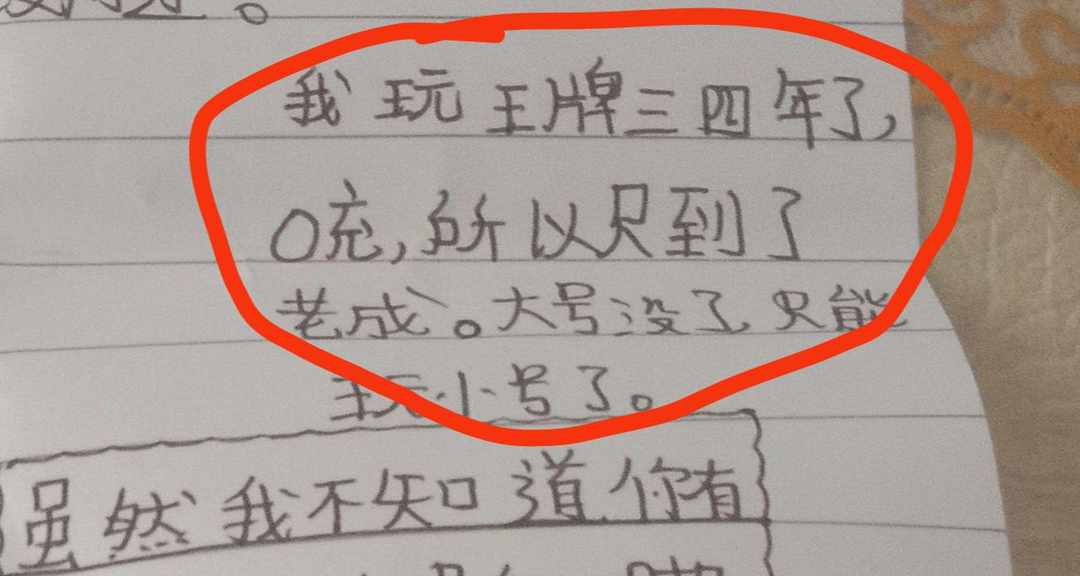 。
我玩王牌三四年了，
0充，所以只到了
老成。大号没了只能
玩小号了。
虽然我不知道你有